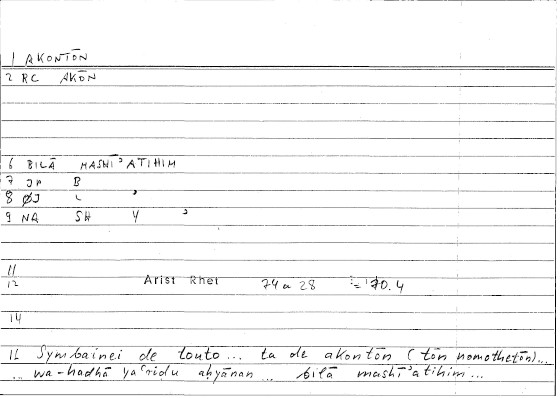 1 AKONTŌN
2 RC AKŌN
6 BILĀ MASHĪʾATIHIM
7 JP B
8 ØJ L ʾ
9 NA SH Y ʾ
11
12 Arist Rhet 74a 28 = 170.4
14
11 Symbainei de touto... ta de akontōn (tōn nomothetōn)...
... wa-hadhā yaʿriḍu aḥyānan... bilā mashīʾatihim...